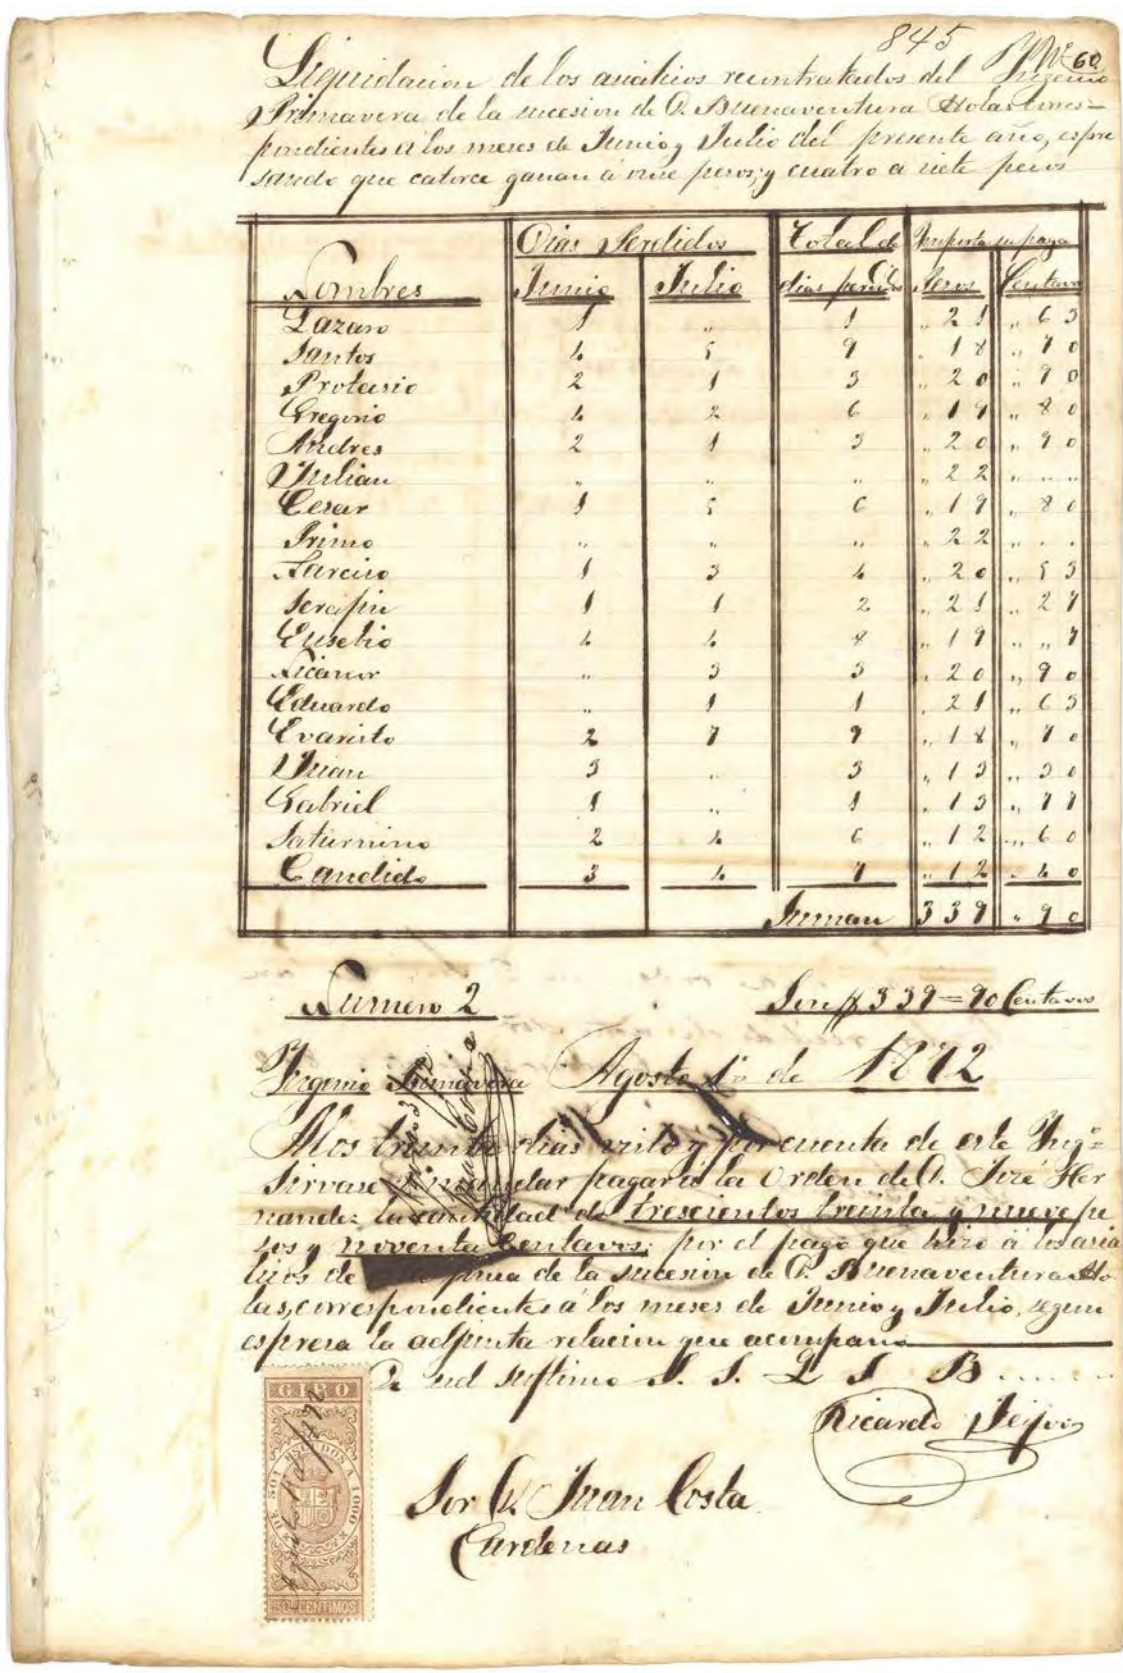 845
Nº 60
Liquidacion de los asiaticos recontratados del Ingenio
Primavera de la sucesion de D. Buenaventura Holas Corres=
pondientes á los meses de Junio y Julio del presente año, espre
sando que catorce ganan á once pesos; y cuatro a siete pesos
Nombres Dias Perdidos Total de Importe su paga
Junio Julio dias perdidos Pesos Centavos
Lazaro 1 „ 1 „ 21 „ 63
Santos 4 5 9 „ 18 „ 70
Protasio 2 1 3 „ 20 „ 90
Gregorio 4 2 6 „ 19 „ 80
Andres 2 1 3 „ 20 „ 90
Julian „ „ „ „ 22 „ „ „
Cesar 1 5 6 „ 19 „ 80
Primo „ „ „ „ 22 „ „ „
Narciso 1 3 4 „ 20 „ 53
Serapin 1 1 2 „ 21 „ 27
Eusebio 4 4 8 „ 19 „ „ 7
Nicanor „ 3 3 „ 20 „ 90
Eduardo „ 1 1 „ 21 „ 63
Evaristo 2 7 9 „ 18 „ 70
Juan 3 „ 3 „ 13 „ 30
Gabriel 1 „ 1 „ 13 „ 77
Saturnino 2 4 6 „ 12 „ 60
Candido 3 4 7 „ 12 „ 40
Suman 339 „ 90
Numero 2 Son $ 339=90 Centavos
Ingenio Primavera Agosto 1º de 1872
A los treinta dias vista y por cuenta de este Ingº=
sirvase mandar pagar á la Orden de D. José Her
nandez la cantidad de trescientos treinta y nueve pe
sos y noventa Centavos; por el pago que hizo á los asia
ticos de finca de la sucesion de D. Buenaventura Ho-
las, correspondientes á los meses de Junio y Julio, segun
espresa la adjunta relacion que acompaño
De ud septimo S. S. Q S B .....
Ricardo
GIRO
DE 501 ESCUDOS A 1000
50 CENTIMOS
Sor D. Juan Costa
Cardenas